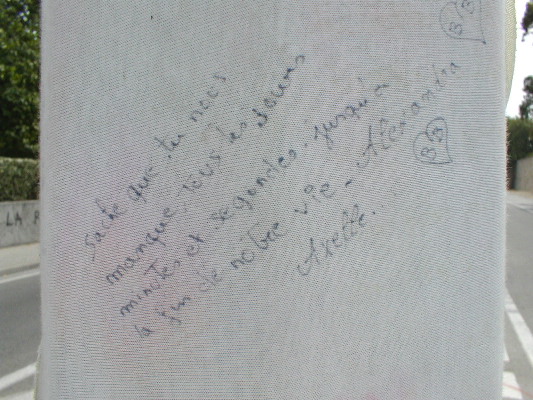 Sache que tu nous
manque tous les jours
minutes et segondes. jusqu'a
la fin de notre vie. Alexandra
Axelle.
LA R